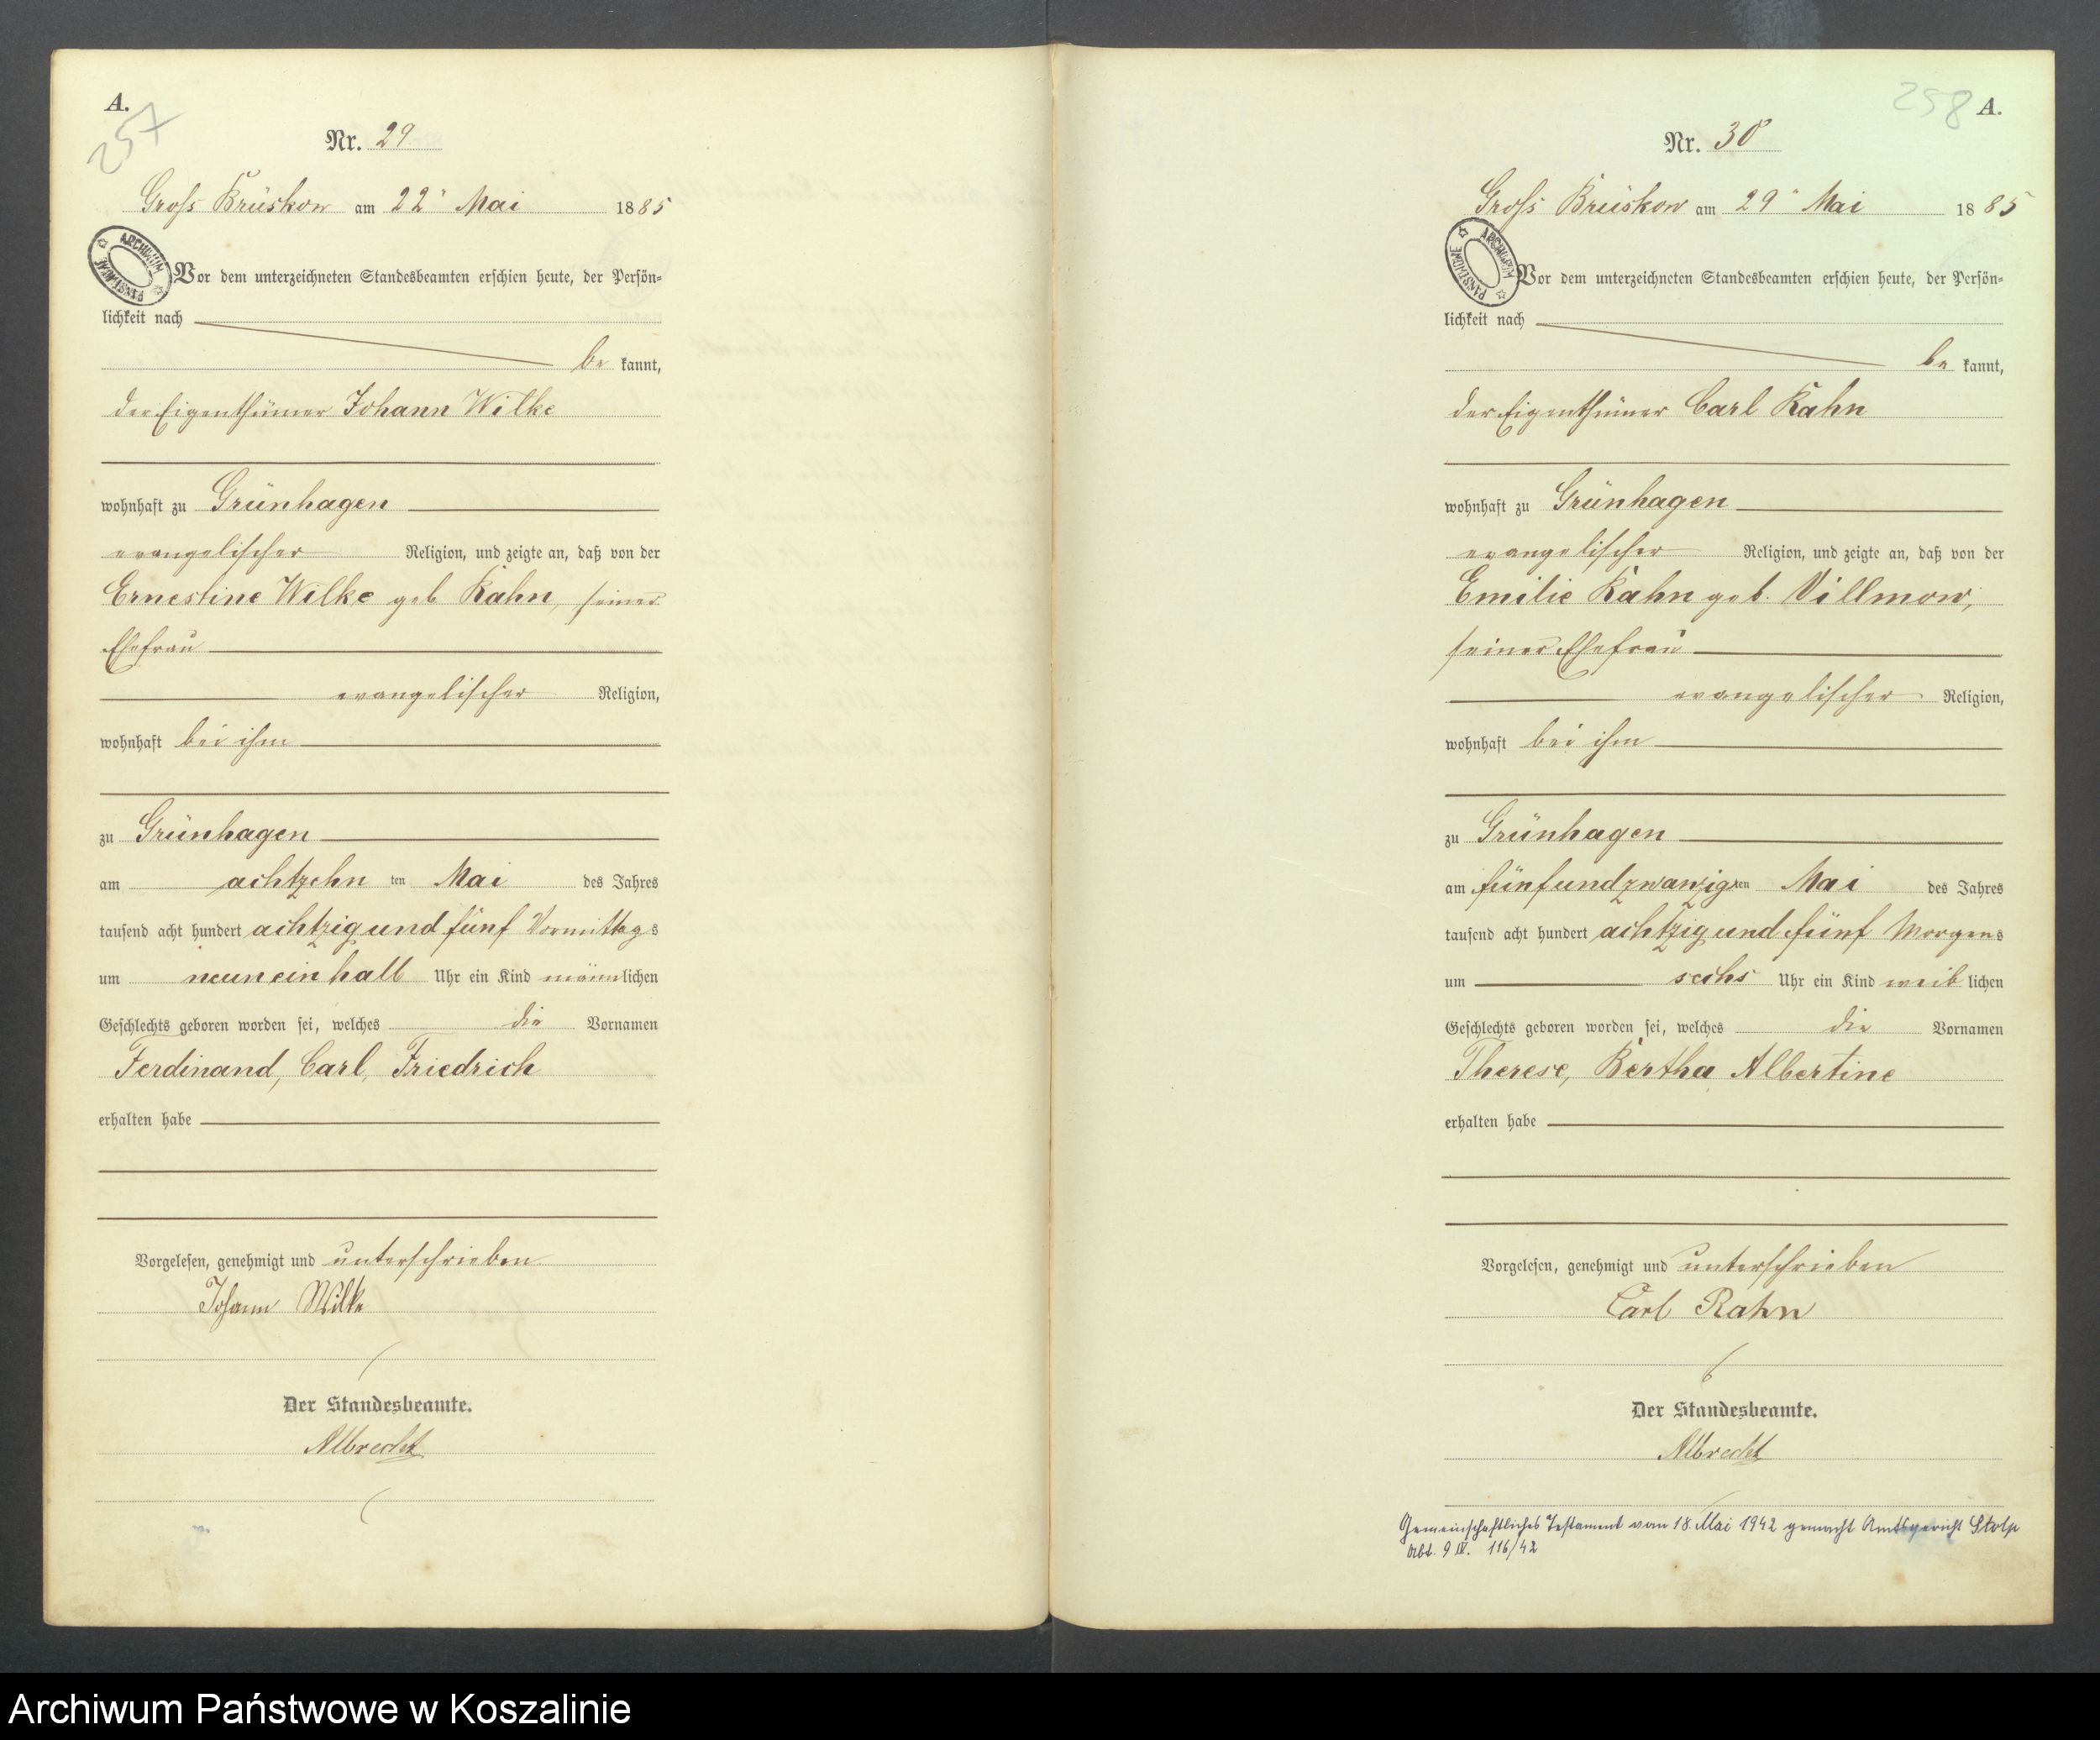 A.
257
Nr. 29
Gross Brüskow am 22" Mai 1885
ARCHIWUM PAŃSTWOWE
Vor dem unterzeichneten Standesbeamten erschien heute, der Persön-
lichkeit nach
be kannt,
der Eigenthümer Johann Wilke
wohnhaft zu Grünhagen
evangelischer Religion, und zeigte an, daß von der
Ernestine Wilke geb Rahn, seiner
Ehefrau
evangelischer Religion,
wohnhaft bei ihm
zu Grünhagen
am achtzehn ten Mai des Jahres
tausend acht hundert achtzig und fünf Vormittags
um neun ein halb Uhr ein Kind männlichen
Geschlechts geboren worden sei, welches die Vornamen
Ferdinand, Carl, Friedrich
erhalten habe
Vorgelesen, genehmigt und unterschrieben
Johann Wilke
Der Standesbeamte.
Albrecht
258 A.
Nr. 30
Gross Brüskow am 29" Mai 1885
ARCHIWUM PAŃSTWOWE
Vor dem unterzeichneten Standesbeamten erschien heute, der Persön-
lichkeit nach
be kannt,
der Eigenthümer Carl Rahn
wohnhaft zu Grünhagen
evangelischer Religion, und zeigte an, daß von der
Emilie Rahn geb. Villmow,
seiner Ehefrau
evangelischer Religion,
wohnhaft bei ihm
zu Grünhagen
am fünfundzwanzigten Mai des Jahres
tausend acht hundert achtzig und fünf Morgens
um sechs Uhr ein Kind weib lichen
Geschlechts geboren worden sei, welches die Vornamen
Therese, Bertha Albertine
erhalten habe
Vorgelesen, genehmigt und unterschrieben
Carl Rahn
Der Standesbeamte.
Albrecht
Gemeinschaftliches Testament vom 18. Mai 1942 gemacht Amtsgericht Stolp
Abt. 9 IV. 116/42
Archiwum Państwowe w Koszalinie